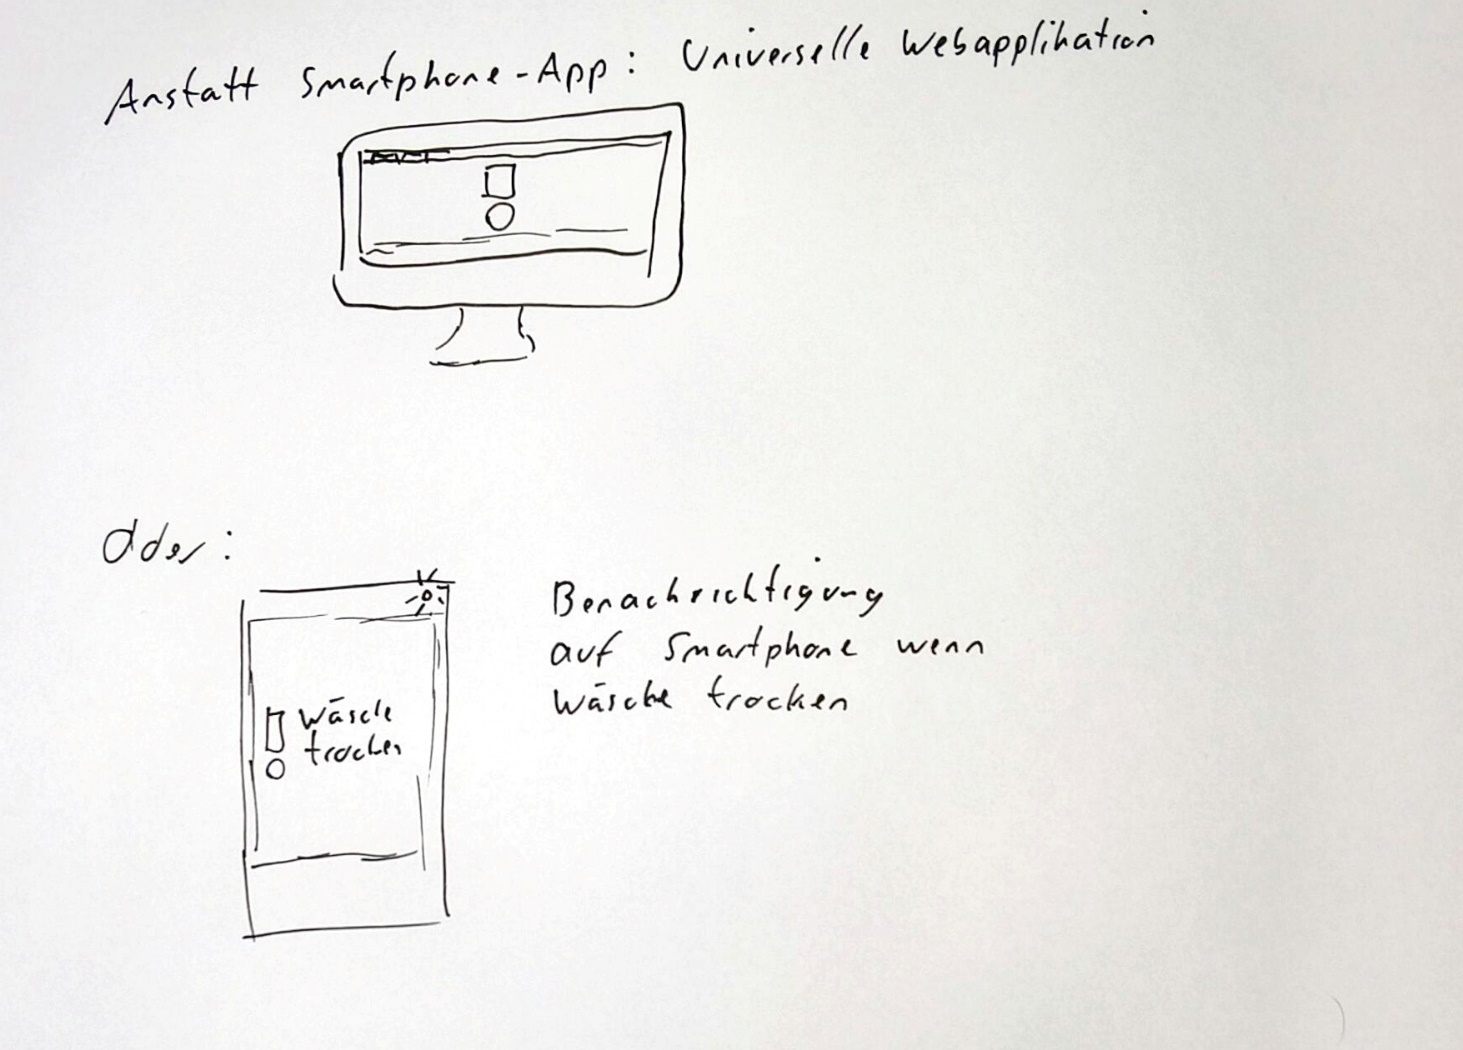 Anstatt Smartphone-App: Universelle Webapplikation
Oder:
Wäsche
trocken
Benachrichtigung
auf Smartphone wenn
Wäsche trocken